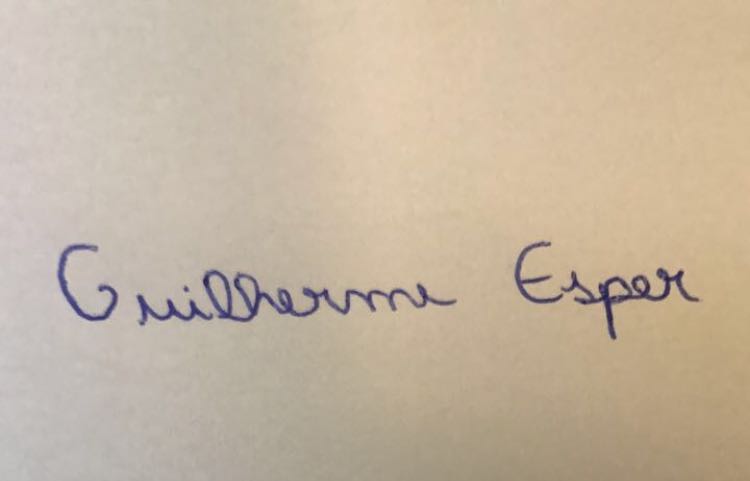 Guilherme Esper